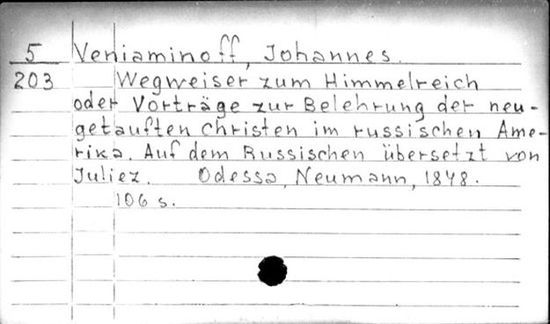 5 Veniaminoff, Johannes.
203 Wegweiser zum Himmelreich
oder Vorträge zur Belehrung der neu-
getauften Christen im russischen Ame-
rika. Auf dem Russischen übersetzt von
Juliez. Odessa, Neumann, 1848.
106 s.